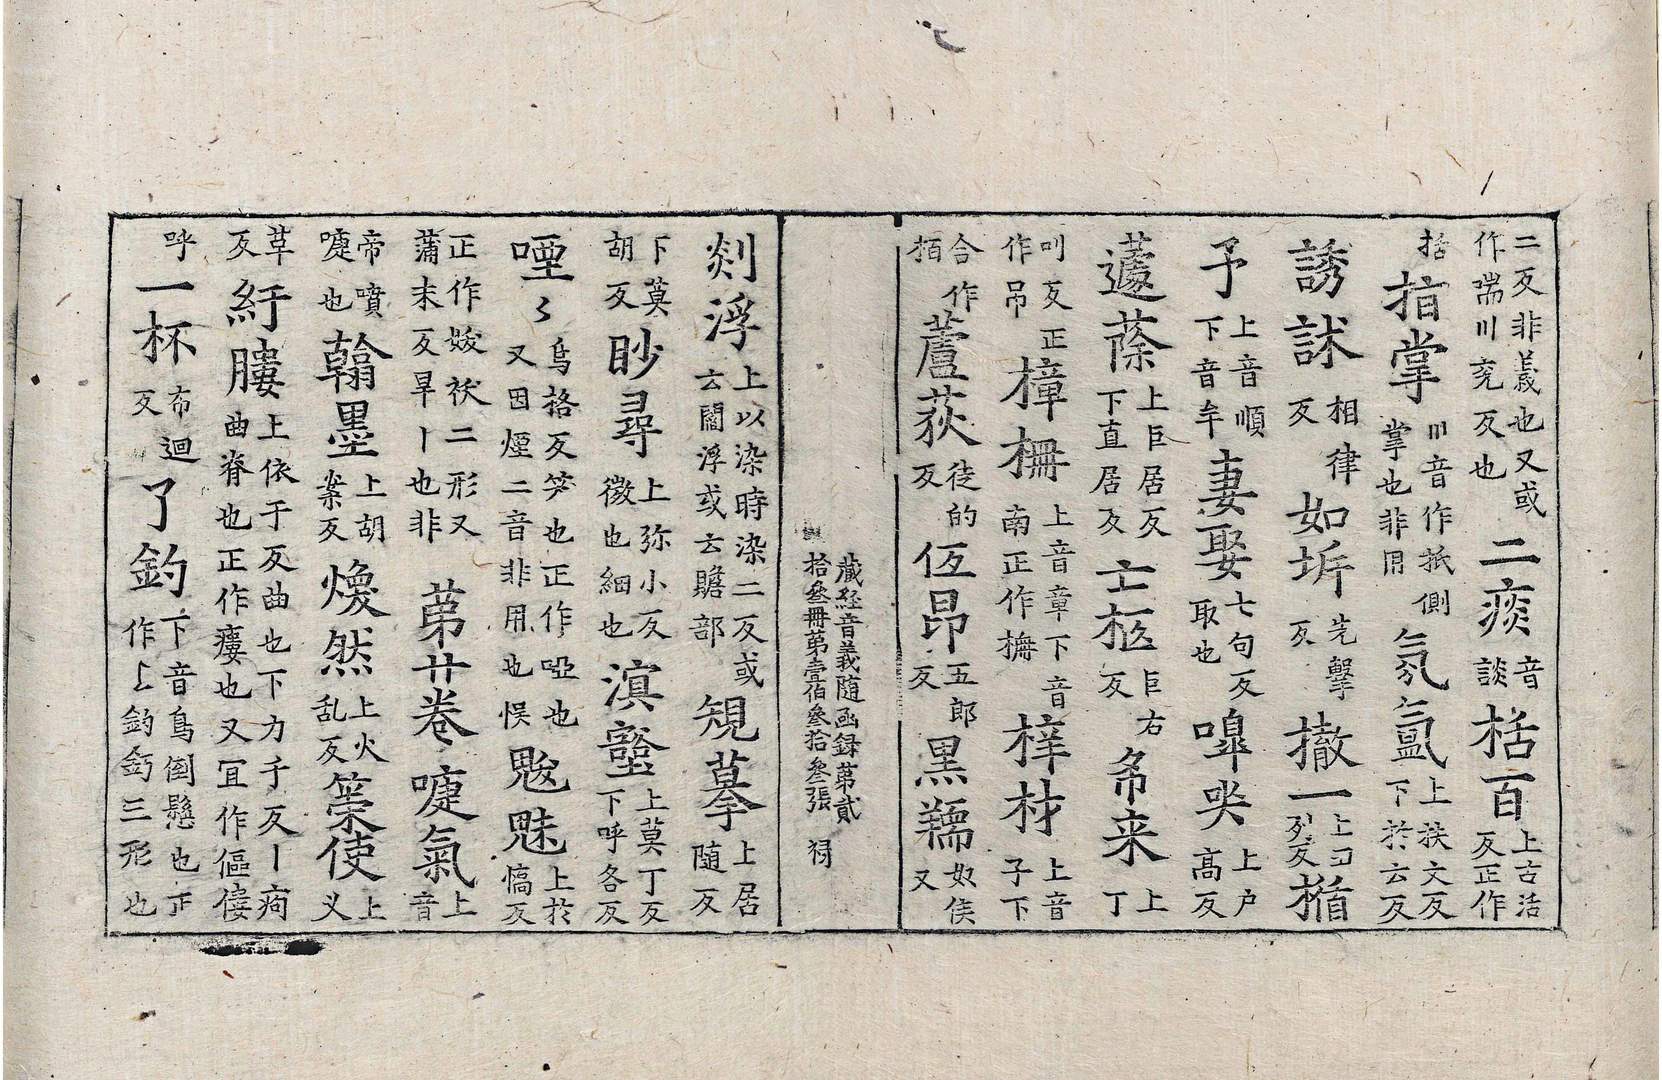 二反非義也又或作耑川兖反也二痰音談栝百上古活反正作
括指掌川音作抵側掌也非用氛氳上扶文反下於云反
誘訹相律反如坼先擊反撤一上丑列反揗
予上音順下音牟妻娶七句反取也嘷哭上户高反
蘧蒢上巨居反下直居反亡柩巨右反帋来上丁
叫反正作吊樟柵上音章下音南正作楠梓材上音子下
合作栢蘆荻徒的反仾昂五郎反黒羺奴侯又
藏經音義随函録苐貳拾叄冊苐壹伯叄拾叄張 㝵
剡浮上以染時染二反或云閻浮或云贍部規摹上居随反
下莫胡反眇尋上弥小反微也細也溟壑上莫丁反下呼各反
㖶〻烏格反笑也正作啞也又因煙二音非用也悮魃魅上於僞反
正作妭袄二形又蒲末反旱丨也非苐廿卷嚏氣上音
帝噴嚏也翰墨上胡案反煥然上火乱反篥使上义
草反紆膢上依于反曲也下力手反丨痀曲脊也正作瘻也又冝作傴僂
呼一杯布迴反了釣下音鳥倒懸也正作𠄌釣鈎三形也